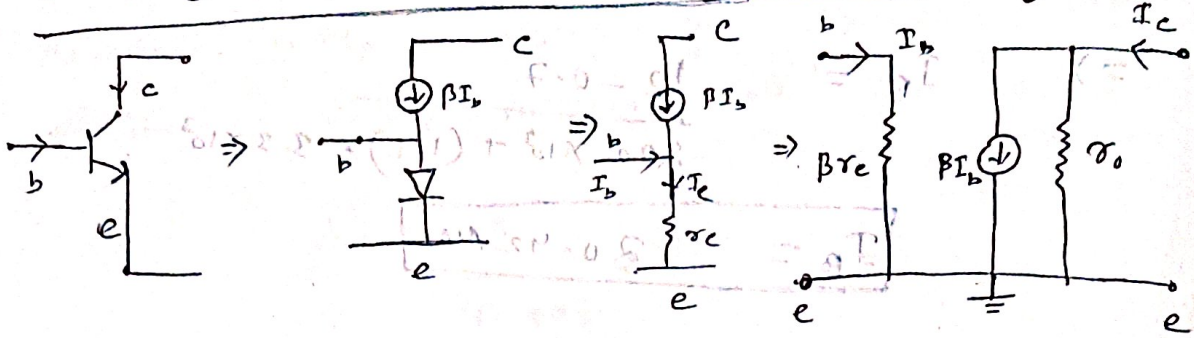 c
b
e
⇒
C
βI_b
b
e
⇒
C
βI_b
b
I_b
I_e
r_e
e
⇒
b
I_b
I_c
βr_e
βI_b
r_o
e
e